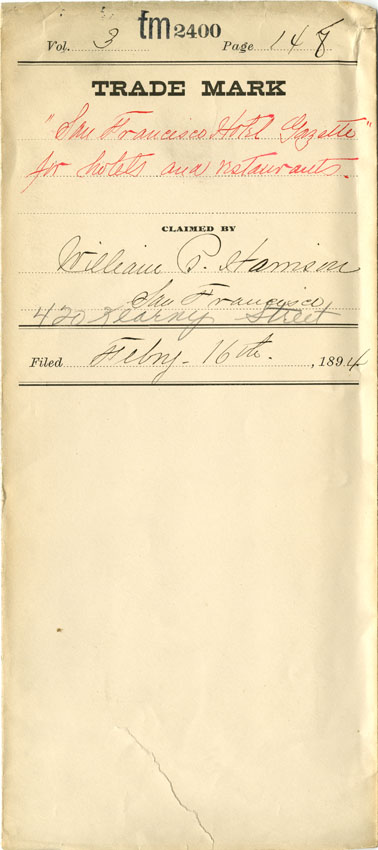 fm2400
Vol. 3 Page 148
TRADE MARK
"San Francisco Hotel Gazette"
for hotels and restaurants.
CLAIMED BY
William P. Harrison
San Francisco
420 Kearny Street
Filed Feby. 16th. , 1894